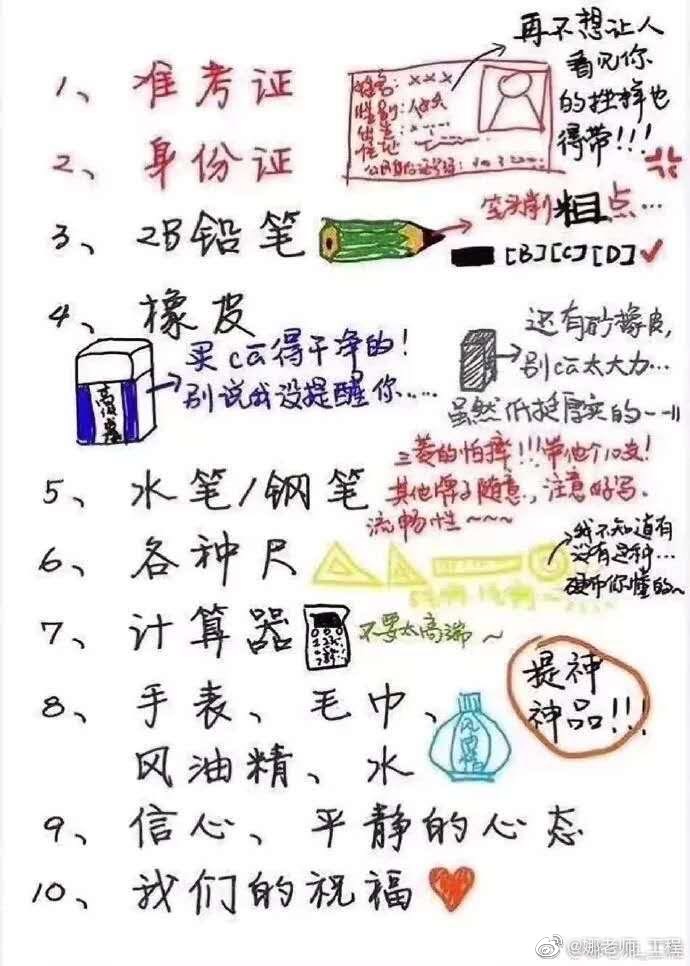 1、准考证
再不想让人
看见你
的挫样也
得带!!!
姓名: ×××
性别:
住址
2、身份证
3、2B铅笔
笔头削粗点...
[B][C][D]✓
4、橡皮
买cā得干净的!
别说我没提醒你.....
还有砂橡皮,
别cā太大力...
虽然纸挺厚实的--||
5、水笔/钢笔
三菱的怕摔!!!带他个10支!
其他牌子随意,注意好写、
流畅性~~~~
6、各种尺
我不知道有
没有这种...
硬币你懂的~
7、计算器
不要太高端~
8、手表、毛巾、
风油精、水
风油精
提神
神品!!!
9、信心、平静的心态
10、我们的祝福
@娜老师_工程